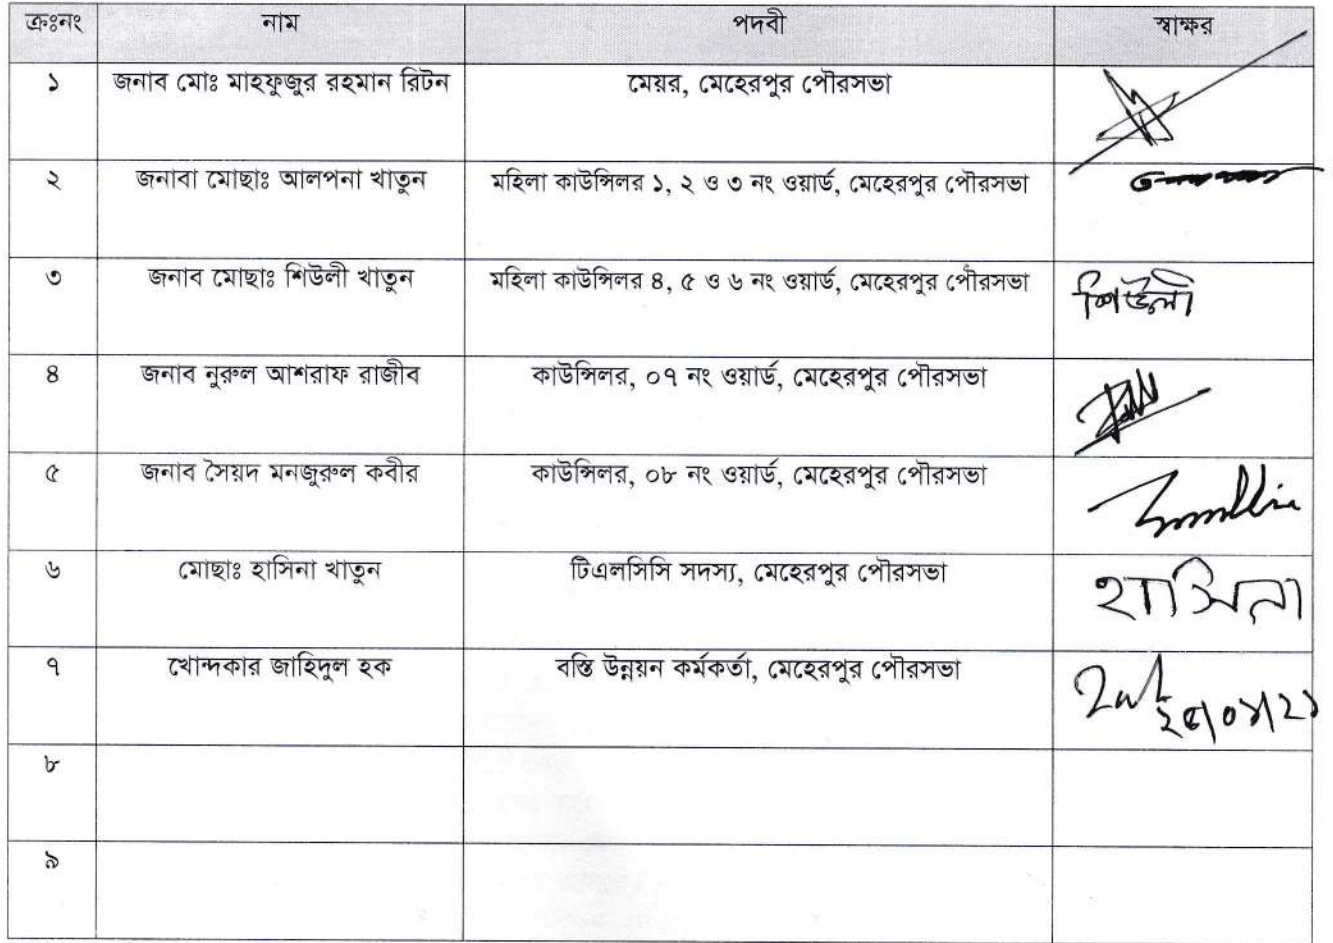 ক্রঃনং নাম পদবী স্বাক্ষর
১ জনাব মোঃ মাহফুজুর রহমান রিটন মেয়র, মেহেরপুর পৌরসভা
২ জনাবা মোছাঃ আলপনা খাতুন মহিলা কাউন্সিলর ১, ২ ও ৩ নং ওয়ার্ড, মেহেরপুর পৌরসভা
৩ জনাব মোছাঃ শিউলী খাতুন মহিলা কাউন্সিলর ৪, ৫ ও ৬ নং ওয়ার্ড, মেহেরপুর পৌরসভা শিউলী
৪ জনাব নুরুল আশরাফ রাজীব কাউন্সিলর, ০৭ নং ওয়ার্ড, মেহেরপুর পৌরসভা
৫ জনাব সৈয়দ মনজুরুল কবীর কাউন্সিলর, ০৮ নং ওয়ার্ড, মেহেরপুর পৌরসভা
৬ মোছাঃ হাসিনা খাতুন টিএলসিসি সদস্য, মেহেরপুর পৌরসভা হাসিনা
৭ খোন্দকার জাহিদুল হক বস্তি উন্নয়ন কর্মকর্তা, মেহেরপুর পৌরসভা
৮
৯